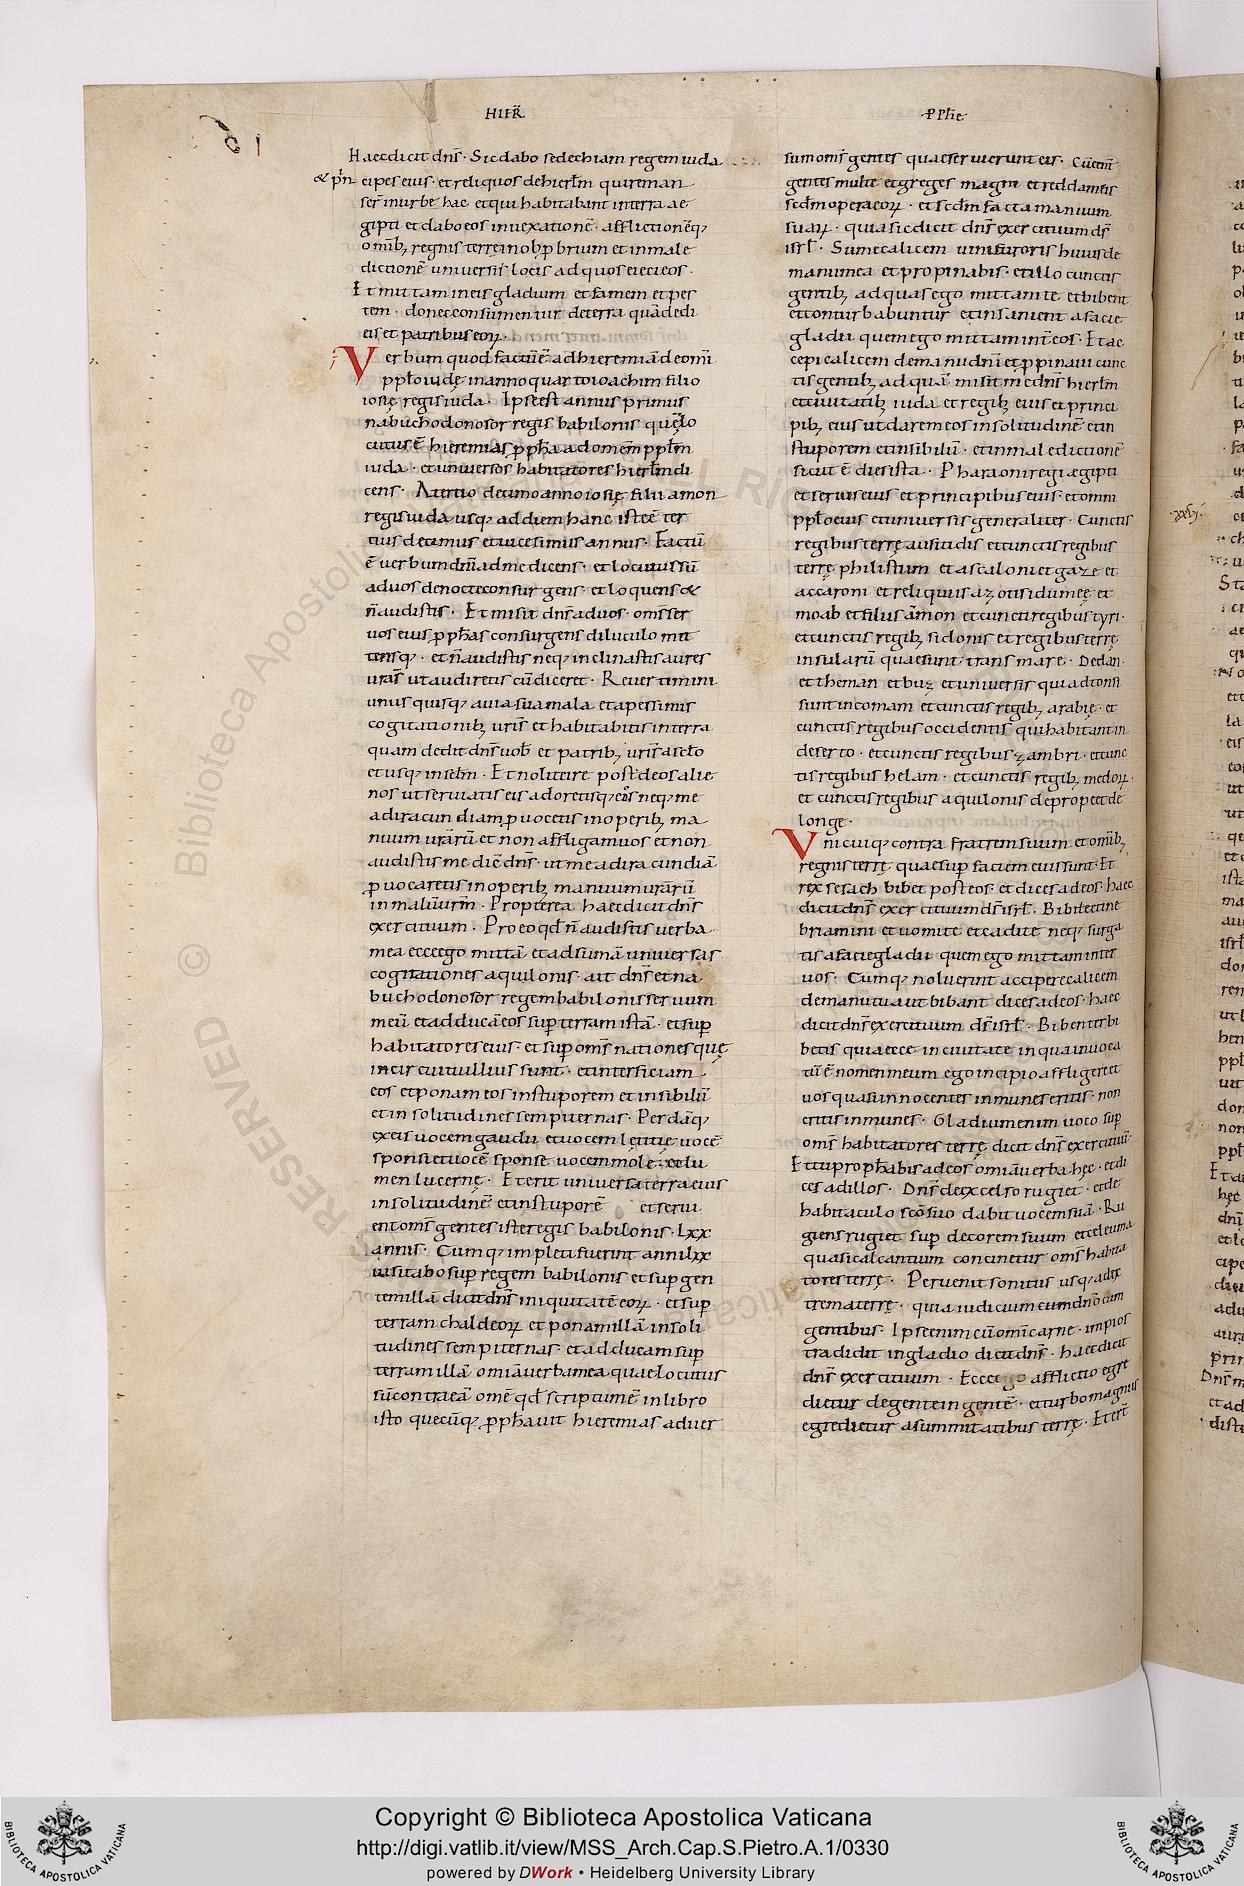 HIER̄
PPh̄ie
Haec dicit dn̄s · Sic dabo sedechiam regem iuda
& pͥncipes eius · et reliquos de hierłm qui reman
ser̄ in urbe hac et qui habitabant in terra ae
gipti et dabo eos in uexationē · afflictionēq;
omīb; regnis terrę in obprobrium et in male
dictionē uniuersis locis ad quos eieci eos ·
Et mittam in eis gladium et famem et pes
tem · donec consumentur de terra quā dedi
eis et patribus eoꝝ ·
Verbum quod factū ē ad hieremiā de omī
ppło iudę in anno quarto ioachim filio
iosię regis iuda · Ipse est annus primus
nabuchodonosor regis babilonis · quę lo
cutus ē hieremias ꝓph̄a ad omēm ppłm
iuda · et uniuersos habitatores hierłm di
cens · A tertio decimo anno iosię filii amon
regis iuda usq; ad diem hanc iste ē ter
tius decimus et uicesimus annus · Factū
ē uerbum dn̄i ad me dicens · et locutus sū
ad uos de nocte consurgens · et loquens &
n̄ audistis · Et misit dn̄s ad uos · om̄s ser
uos eius ꝓph̄as consurgens diluculo mit
tensq; · et n̄ audistis neq; inclinastis aures
urās̄ ut audiretis cū diceret · Reuertimini
unus quisq; a uia sua mala et a pessimis
cogitationib; uris̄ et habitabitis in terra
quam dedit dn̄s uob̄ et patrib; uris̄ a scło
et usq; in sclm̄ · Et nolite ire post deos alie
nos ut seruiatis eis adoretisq; eos neq; me
ad iracundiam ꝓuocetis in operib; ma
nuum urārū et non affligam uos et non
audistis me diē dn̄s · ut me ad iracundiā
ꝓuocaretis in operib; manuum urārū
in malū urm̄ · Propterea haec dicit dn̄s
exercituum · Pro eo qd̄ n̄ audistis uerba
mea ecce ego mittā et adsumā uniuersas
cogitationes aquilonis · ait dn̄s et na
buchodonosor regem babilonis seruum
meū et adducā eos suꝑ terram istā · et suꝑ
habitatores eius · et suꝑ om̄s nationes quę
in circuitu illius sunt · et interficiam
eos et ponam eos in stuporem et in sibilū
et in solitudines sempiternas · Perdāq;
ex eis uocem gaudii et uocem lętitię uocē
sponsi et uocē sponsę uocem molę et lu
men lucernę · Et erit uniuersa terra eius
in solitudinē et in stuporē et serui
ent om̄s gentes iste regis babilonis · Lxx
annis · Cumq; impleti fuerint anni lxx
uisitabo suꝑ regem babilonis et suꝑ gen
tem illā dicit dn̄s iniquitatē eoꝝ · et suꝑ
terram chaldeoꝝ et ponam illā in soli
tudines sempiternas · et adducam suꝑ
terram illā omīa uerba mea quae locutus
sū contra eā omē qd̄ scriptum ē in libro
isto quecūq; ꝓph̄auit hieremias aduer
sum om̄s gentes quae seruierunt eis · Cū eent̄
gentes multe et greges magni et reddam eis
scd̄m opera eoꝝ · et scd̄m facta manuum
suaꝝ · quia sic dicit dn̄s exercituum ds̄
isrł · Sume calicem uini furoris huius de
manu mea et propinabis · et illo cunctis
gentib; ad quas ego mittam te et bibent
et conturbabuntur et insanient a facie
gladii quem ego mittam int̄ eos · Et ac
cepi calicem de manu dn̄i et ꝓpinaui cunc
tis gentib; ad quā misit me dn̄s hierłm
et ciuitatib; iuda et regib; eius et princi
pib; eius ut darem eos in solitudinē et in
stuporem et in sibilū · et in maledictionē
sicut ē dies ista · Pharaoni regi ægipti
et seruis eius et principibus eius · et omni
ppło eius et uniuersis generaliter · Cunctis
regibus terrę ausitidis et cunctis regibus
terrę philistium et ascaloni et gaze et
accaroni et reliquiis azoti idumeę et
moab et filiis amon et cuncti regibus tyri ·
et cunctis regib; sidonis et regibus terrę
insularū quae sunt trans mare · Dedan ·
et theman et buz et uniuersis qui adtonsi
sunt in comam et cunctis regib; arabię · et
cunctis regibus occidentis qui habitant in
deserto · et cunctis regibus zambri · et cunc
tis regibus helam · et cunctis regib; medoꝝ ·
et cunctis regibus aquilonis de prope et de
longe ·
Vnicuiq; contra fratrem suum et omīb;
regnis terrę quae suꝑ faciem eius sunt · Et
rex sesach bibet post eos · et dices ad eos · haec
dicit dn̄s exercituum ds̄ isrł · Bibite et ine
briamini et uomite et cadite neq; surga
tis a facie gladii quem ego mittam inter
uos · Cumq; noluerint accipere calicem
de manu tua ut bibant dices ad eos · haec
dicit dn̄s exercituum ds̄ isrł · Bibentes bi
betis quia ecce in ciuitate in qua inuoca
tū ē nomen meum ego incipio affligere et
uos quasi innocentes inmunes eritis · non
eritis inmunes · Gladium enim uoco suꝑ
om̄s habitatores terrę dicit dn̄s exercituū ·
Et tu proph̄abis ad eos omīa uerba hęc · et di
ces ad illos · Dn̄s de excelso rugiet · et de
habitaculo scō suo dabit uocem suā · Ru
giens rugiet suꝑ decorem suum et celeuma
quasi calcantium concinetur om̄s habita
tores terrę · Peruenit sonitus usq; ad ex
trema terrę · quia iudicium cum dn̄o cum
gentibus · Ipse enim cū omī carne · impios
tradidit in gladio dicit dn̄s · haec dicit
dn̄s exercituum · Ecce ego afflictio egre
dietur de gente in gentē · et turbo magnus
egredietur a summitatibus terrę · Et er̄t
Copyright © Biblioteca Apostolica Vaticana
http://digi.vatlib.it/view/MSS_Arch.Cap.S.Pietro.A.1/0330
powered by DWork • Heidelberg University Library